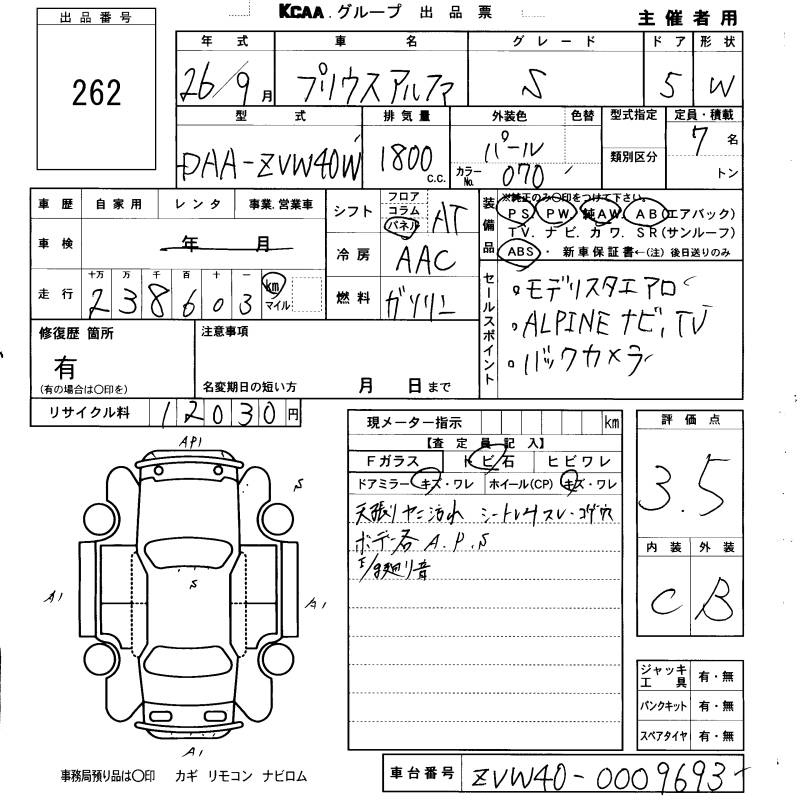 KCAA.グループ 出品票
主催者用
出品番号
262
年式 車名 グレード ドア 形状
26/9月 プリウスアルファ S 5 W
型式 排気量 外装色 色替 型式指定 定員・積載
DAA-ZVW40W 1800 c.c. パール 7名
カラーNo. 070 類別区分 トン
車歴 自家用 レンタ 事業.営業車
車検 年 月
十万 万 千 百 十 一
走行 238603 km マイル
シフト フロア コラム パネル AT
冷房 AAC
燃料 ガソリン
装備品
※純正のみ〇印をつけて下さい。
PS PW 純AW AB(エアバック)
TV. ナビ. カワ. SR(サンルーフ)
ABS・ 新車保証書←(注) 後日送りのみ
セールスポイント
。モデリスタエアロ
・ALPINE ナビ, TV
・バックカメラ
修復歴 箇所
有
(有の場合は〇印を)
注意事項
名変期日の短い方 月 日まで
リサイクル料 12030円
現メーター指示 km
【査定員記入】
Fガラス トビ石 ヒビワレ
ドアミラー キズ・ワレ ホイール(CP) キズ・ワレ
天張りヤニ汚れ シートレザスレ・コゲ穴
ボデー各 A.P.S
E/g廻り音
評価点
3.5
内装 外装
C B
AP1
S
S
A1
A1
A1
ジャッキ工具 有・無
パンクキット 有・無
スペアタイヤ 有・無
事務局預り品は〇印 カギ リモコン ナビロム
車台番号 ZVW40-0009693